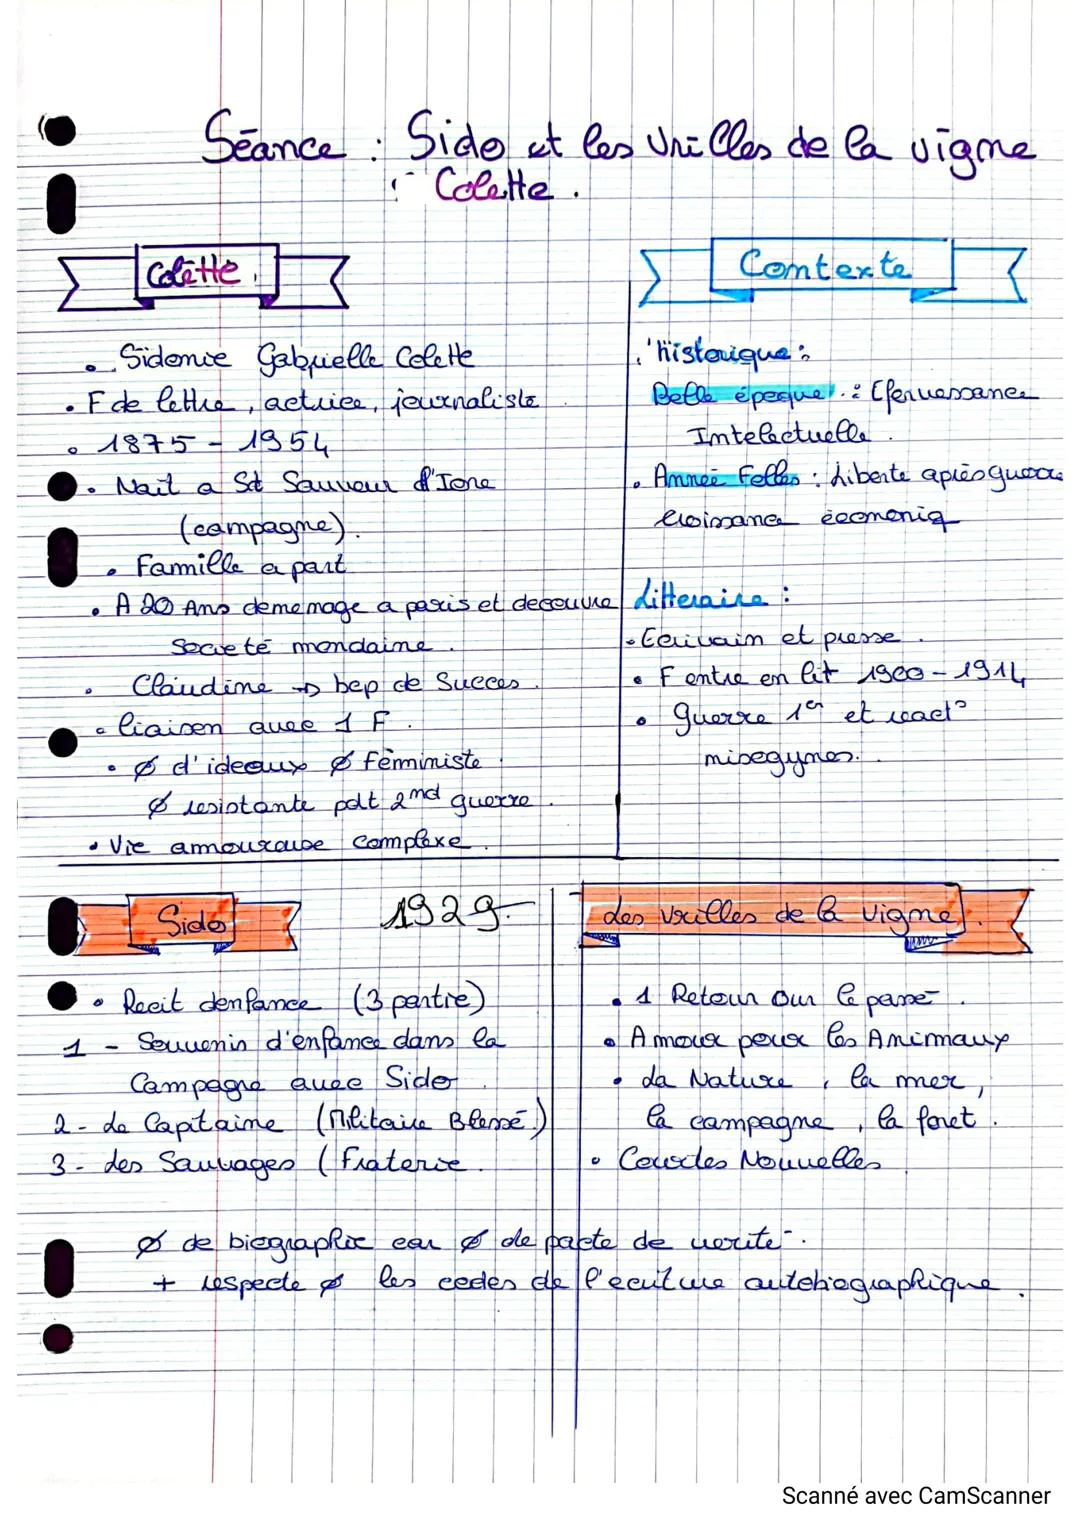 Séance : Sido et les Vrilles de la vigne
: Colette .
Colette .
. Sidonie Gabrielle Colette
. F de lettre , actrice, journaliste
. 1875 - 1954
. Nait a St Sauveur d'Ione
(campagne).
. Famille a part
. A 20 Ans demenage a paris et decouvre
Societé mondaine .
. Claudine → bcp de Succes .
. liaison avec 1 F .
. ø d'ideaux ø féministe
ø resistante pdt 2nd guerre .
. Vie amoureuse complexe .
Contexte
. historique :
Belle époque : Efervessance
Intelectuelle .
. Année Folles : Liberte après guerre
croissance économiq
Litteraire :
. Ecrivain et presse .
. F entre en lit 1900 - 1914
. guerre 1er et react°
misogynes .
Sido 1929.
. Recit denfance (3 partie)
1 - Souvenir d'enfance dans la
Campagne avec Sido .
2 - Le Capitaine (Militaire Blessé)
3 - les Sauvages ( Fraterie .
Les vrilles de la vigne .
. 1 Retour sur le passé .
. Amour pour les Animaux
. La Nature , la mer ,
la campagne , la foret .
. Courtes Nouvelles
ø de biographie car ø de pacte de verité .
+ respecte ø les codes de l'ecriture autobiographique .
Scanné avec CamScanner